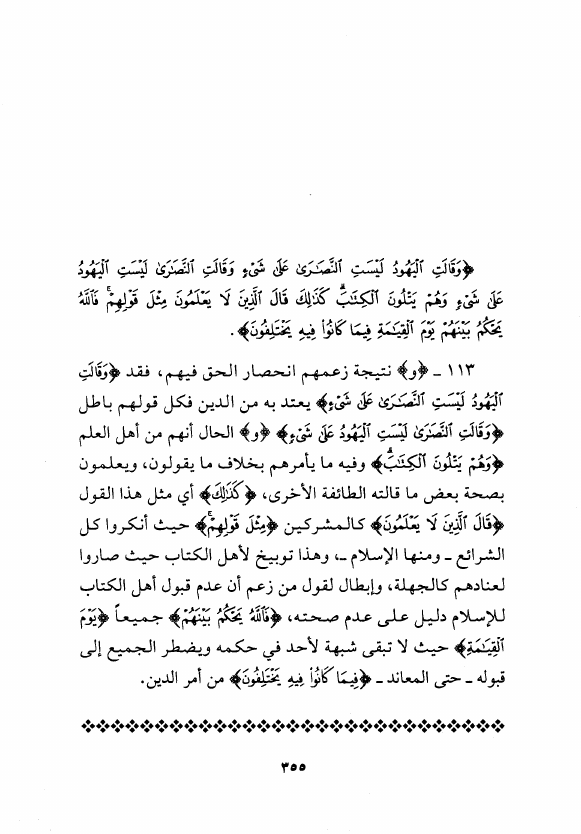 ﴿وَقَالَتِ الْيَهُودُ لَيْسَتِ النَّصَارَىٰ عَلَىٰ شَيْءٍ وَقَالَتِ النَّصَارَىٰ لَيْسَتِ الْيَهُودُ
عَلَىٰ شَيْءٍ وَهُمْ يَتْلُونَ الْكِتَابَ ۗ كَذَٰلِكَ قَالَ الَّذِينَ لَا يَعْلَمُونَ مِثْلَ قَوْلِهِمْ ۚ فَاللَّهُ
يَحْكُمُ بَيْنَهُمْ يَوْمَ الْقِيَامَةِ فِيمَا كَانُوا فِيهِ يَخْتَلِفُونَ﴾.
١١٣ ـ ﴿و﴾ نتيجة زعمهم انحصار الحق فيهم، فقد ﴿وَقَالَتِ
الْيَهُودُ لَيْسَتِ النَّصَارَىٰ عَلَىٰ شَيْءٍ﴾ يعتد به من الدين فكل قولهم باطل
﴿وَقَالَتِ النَّصَارَىٰ لَيْسَتِ الْيَهُودُ عَلَىٰ شَيْءٍ﴾ ﴿و﴾ الحال أنهم من أهل العلم
﴿وَهُمْ يَتْلُونَ الْكِتَابَ ۗ﴾ وفيه ما يأمرهم بخلاف ما يقولون، ويعلمون
بصحة بعض ما قالته الطائفة الأخرى، ﴿كَذَٰلِكَ﴾ أي مثل هذا القول
﴿قَالَ الَّذِينَ لَا يَعْلَمُونَ﴾ كالمشركين ﴿مِثْلَ قَوْلِهِمْ ۚ﴾ حيث أنكروا كل
الشرائع ـ ومنها الإسلام ـ، وهذا توبيخ لأهل الكتاب حيث صاروا
لعنادهم كالجهلة، وإبطال لقول من زعم أن عدم قبول أهل الكتاب
للإسلام دليل على عدم صحته، ﴿فَاللَّهُ يَحْكُمُ بَيْنَهُمْ﴾ جميعاً ﴿يَوْمَ
الْقِيَامَةِ﴾ حيث لا تبقى شبهة لأحد في حكمه ويضطر الجميع إلى
قبوله ـ حتى المعاند ـ ﴿فِيمَا كَانُوا فِيهِ يَخْتَلِفُونَ﴾ من أمر الدين.
٣٥٥